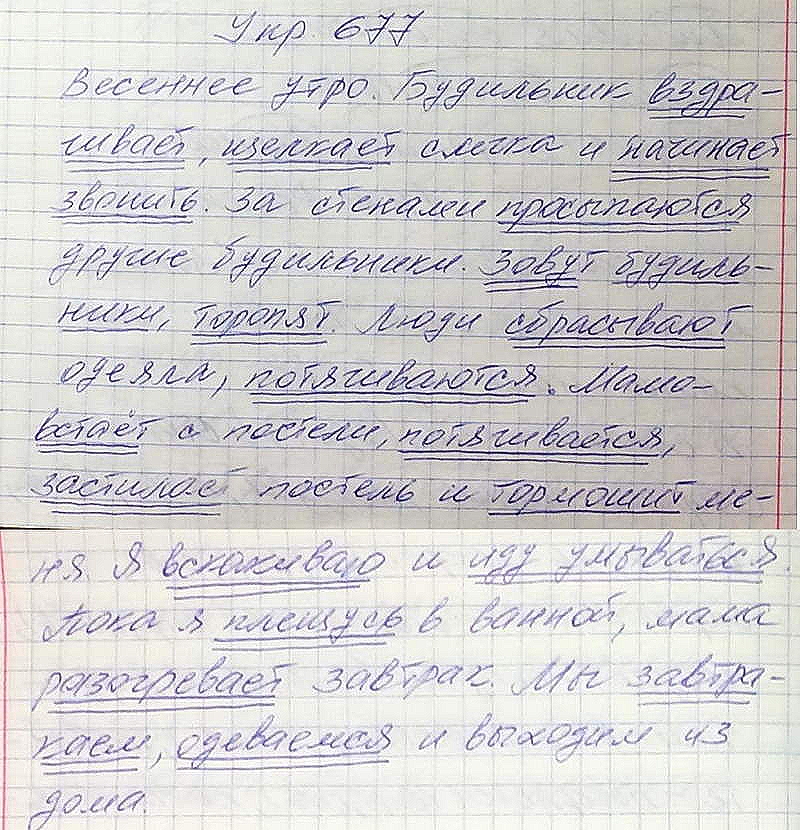 Укр. 677
Весеннее утро. Будильник вздра-
гивает, щелкает слегка и начинает
звонить. За стенами просыпаются
другие будильники. Зовут будиль-
ники, торопят. Люди сбрасывают
одеяла, потягиваются. Мама
встаёт с постели, потягивается,
застилает постель и тормошит ме-
ня. Я вскакиваю и иду умываться.
Пока я плещусь в ванной, мама
разогревает завтрак. Мы завтра-
каем, одеваемся и выходим из
дома.